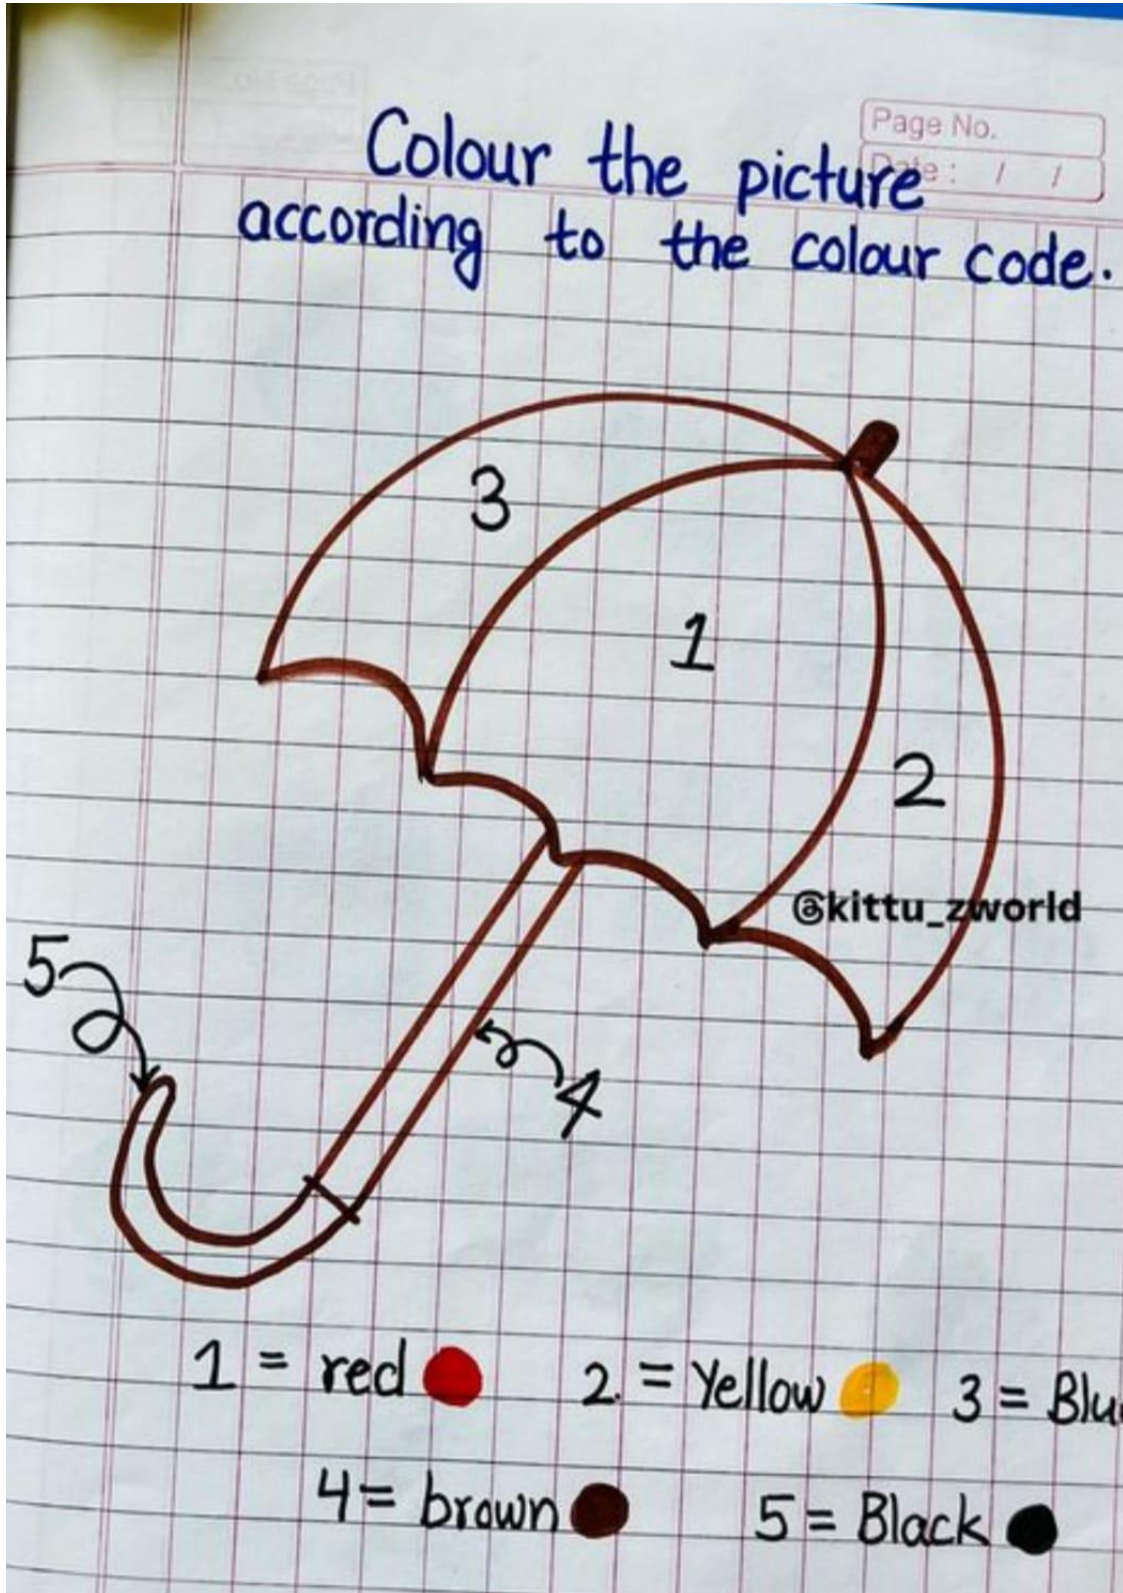 Page No.
Date : / /
Colour the picture
according to the colour code.
3
1
2
@kittu_zworld
5
4
1 = red
2. = Yellow
3 = Blu
4 = brown
5 = Black